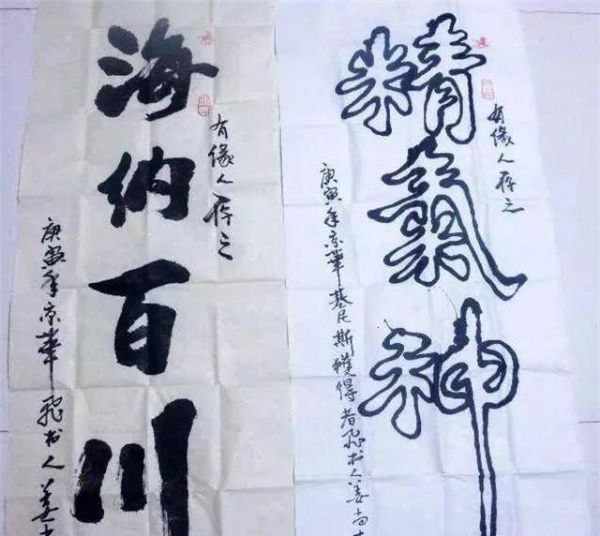 海纳百川
有缘人存之
庚寅年京華飛书人姜
精氣神
有缘人存之
庚寅年京華基尼斯獲得者飛书人姜尚